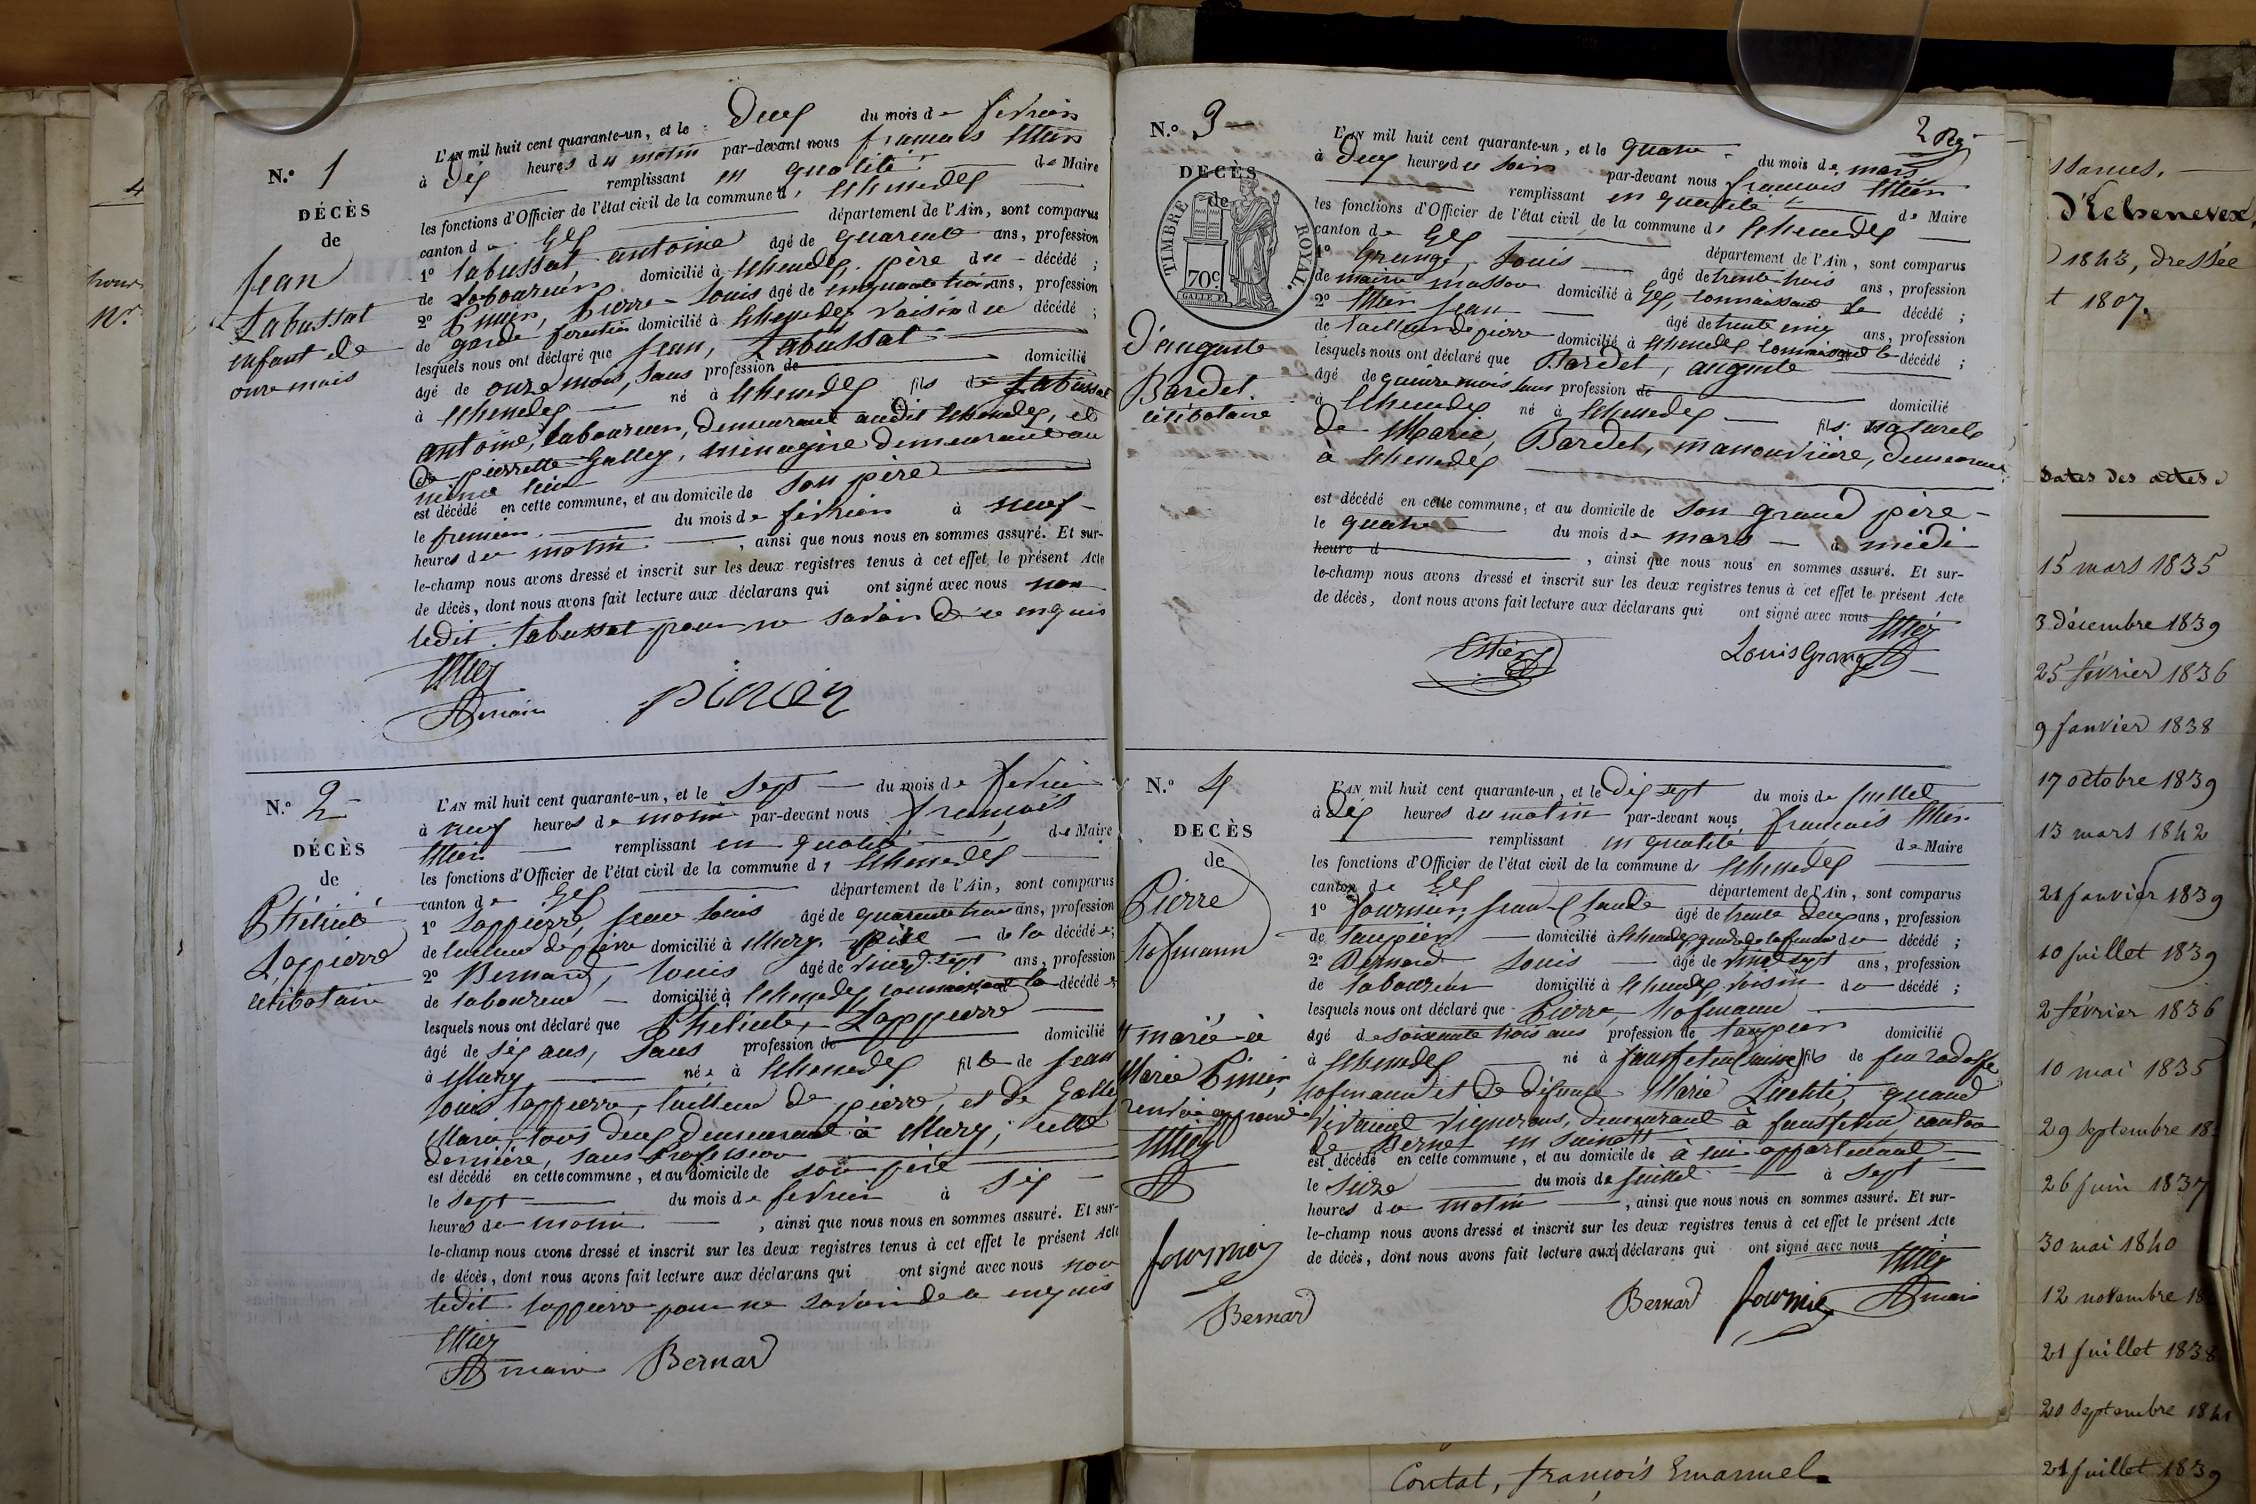 N.° 1
DÉCÈS
de
Jean
Labussat
enfant de
onze mois
L'AN mil huit cent quarante-un, et le deux du mois de fevrier
à dix heures du matin par-devant nous françois
remplissant en qualité de Maire
les fonctions d'Officier de l'état civil de la commune d'
canton de Gex département de l'Ain, sont comparus
1° Labussat, antoine agé de quarente ans, profession
de Laboureur domicilié à père du décédé ;
2° Pierre-Louis agé de cinquante trois ans, profession
de garde forestier domicilié à voisin du décédé ;
lesquels nous ont déclaré que Jean, Labussat
agé de onze mois, sans profession de domicilié
à né à fils de Labussat
antoine, Laboureur, demeurant audit et
de pierrette Galley, ménagère demeurant au
même lieu
est décédé en cette commune, et au domicile de son père
le premier du mois de février à neuf
heures du matin, ainsi que nous nous en sommes assuré. Et sur-
le-champ nous avons dressé et inscrit sur les deux registres tenus à cet effet le présent Acte
de décès, dont nous avons fait lecture aux déclarans qui ont signé avec nous non
ledit Labussat pour ne savoir de ce enquis
maire
N.° 2
DÉCÈS
de
Lappierre
célibataire
L'AN mil huit cent quarante-un, et le sept du mois de fevrier
à neuf heures du matin par-devant nous françois
remplissant en qualité de Maire
les fonctions d'Officier de l'état civil de la commune d'
canton de Gex département de l'Ain, sont comparus
1° Lappierre, Jean Louis agé de quarente trois ans, profession
de tailleur de pierre domicilié à père de la décédée ;
2° Bernard, Louis agé de vingt sept ans, profession
de laboureur domicilié à connaissant la décédée
lesquels nous ont déclaré que Lappierre
agé de six ans, sans profession de domicilié
à née à fille de Jean
Louis Lappierre, tailleur de pierre et de Galley
Marie, tous deux demeurant à cette
dernière, sans profession
est décédé en cette commune, et au domicile de son père
le sept du mois de fevrier à six
heures du matin, ainsi que nous nous en sommes assuré. Et sur-
le-champ nous avons dressé et inscrit sur les deux registres tenus à cet effet le présent Acte
de décès, dont nous avons fait lecture aux déclarans qui ont signé avec nous non
ledit Lappierre pour ne savoir de ce enquis
maire Bernard
N.° 3
DECÈS
de
TIMBRE ROYAL.
70c.
D'auguste
Bardet
célibataire
L'AN mil huit cent quarante-un, et le quatre du mois de mars
à deux heures du soir par-devant nous françois
remplissant en qualité de Maire
les fonctions d'Officier de l'état civil de la commune d'
canton de Gex département de l'Ain, sont comparus
1° Grange, Louis agé de trente trois ans, profession
de maitre masson domicilié à Gex connaissant le décédé ;
2° Jean agé de trente cinq ans, profession
de tailleur de pierre domicilié à connaissant le décédé ;
lesquels nous ont déclaré que Bardet, auguste
agé de quinze mois sans profession de domicilié
à né à fils naturel
de Marie Bardet, manouvrière, demeurant
à
est décédé en cette commune, et au domicile de son grand père
le quatre du mois de mars à midi
heure d , ainsi que nous nous en sommes assuré. Et sur-
le-champ nous avons dressé et inscrit sur les deux registres tenus à cet effet le présent Acte
de décès, dont nous avons fait lecture aux déclarans qui ont signé avec nous
Louis Grange
N.° 4
DECÈS
de
Pierre
hofmann
marié à
Marie
renvoi approuvé
fournier
Bernard
L'AN mil huit cent quarante-un, et le dix sept du mois de juillet
à dix heures du matin par-devant nous françois
remplissant en qualité de Maire
les fonctions d'Officier de l'état civil de la commune d'
canton de Gex département de l'Ain, sont comparus
1° fournier, Jean Claude agé de trente deux ans, profession
de taupier domicilié à gendre de la femme du décédé ;
2° Bernard Louis agé de vingt sept ans, profession
de laboureur domicilié à voisin du décédé ;
lesquels nous ont déclaré que Pierre hofmann
agé de soixante trois ans profession de taupier domicilié
à né à (suisse) fils de feu
hofmann et de défunte Marie quand
vivaient vignerons, demeurant à canton
de Berne en suisse
est décédé en cette commune, et au domicile de à lui appartenant
le seize du mois de juillet à sept
heures du matin, ainsi que nous nous en sommes assuré. Et sur-
le-champ nous avons dressé et inscrit sur les deux registres tenus à cet effet le présent Acte
de décès, dont nous avons fait lecture aux déclarans qui ont signé avec nous
Bernard fournier maire
1843, dressée
1807.
Dates des actes.
15 mars 1835
3 décembre 1839
25 février 1836
9 janvier 1838
17 octobre 1839
13 mars 1842
21 janvier 1839
10 juillet 1839
2 février 1836
10 mai 1835
29 septembre 18
26 juin 1837
30 mai 1840
12 novembre 18
21 juillet 1838
20 septembre 1841
21 juillet 1839
Contat, françois Emanuel